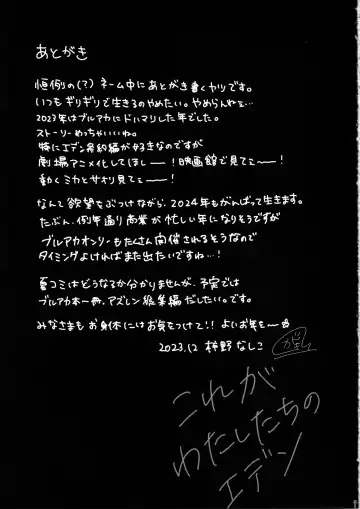 あとがき
恒例の(?)ネーム中にあとがき書くヤツです。
いつもギリギリで生きるのやめたい。やめらんねェ…
2023年はブルアカにドハマリした年でした。
ストーリーめっちゃいいね。
特にエデン条約編が好きなのですが
劇場アニメ化してほしー!映画館で見てェー!
動くミカとサオリ見てェー!
なんて欲望をぶつけながら、2024年もがんばって生きます。
たぶん、例年通り商業が忙しい年になりそうですが
ブルアカオンリーもたくさん開催されるそうなので
タイミングよければまた出たいですね…!
夏コミはどうなるか分かりませんが、予定では
ブルアカ本一冊、アズレン総集編だしたい。です。
みなさまもお身体にはお気をつけて!!よいお年をー
2023.12 柊野なしこ
これが
わたしたちの
エデン